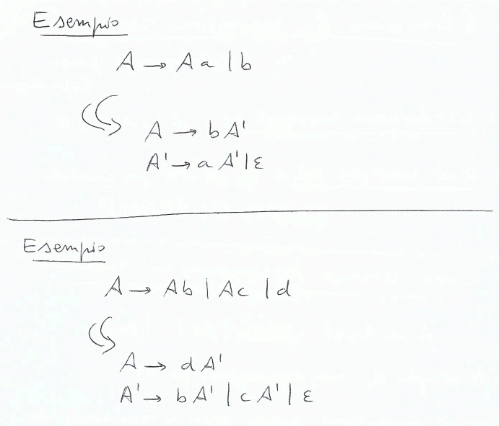 Esempio
A → Aa | b
A → bA'
A' → aA' | ε
Esempio
A → Ab | Ac | d
A → dA'
A' → bA' | cA' | ε